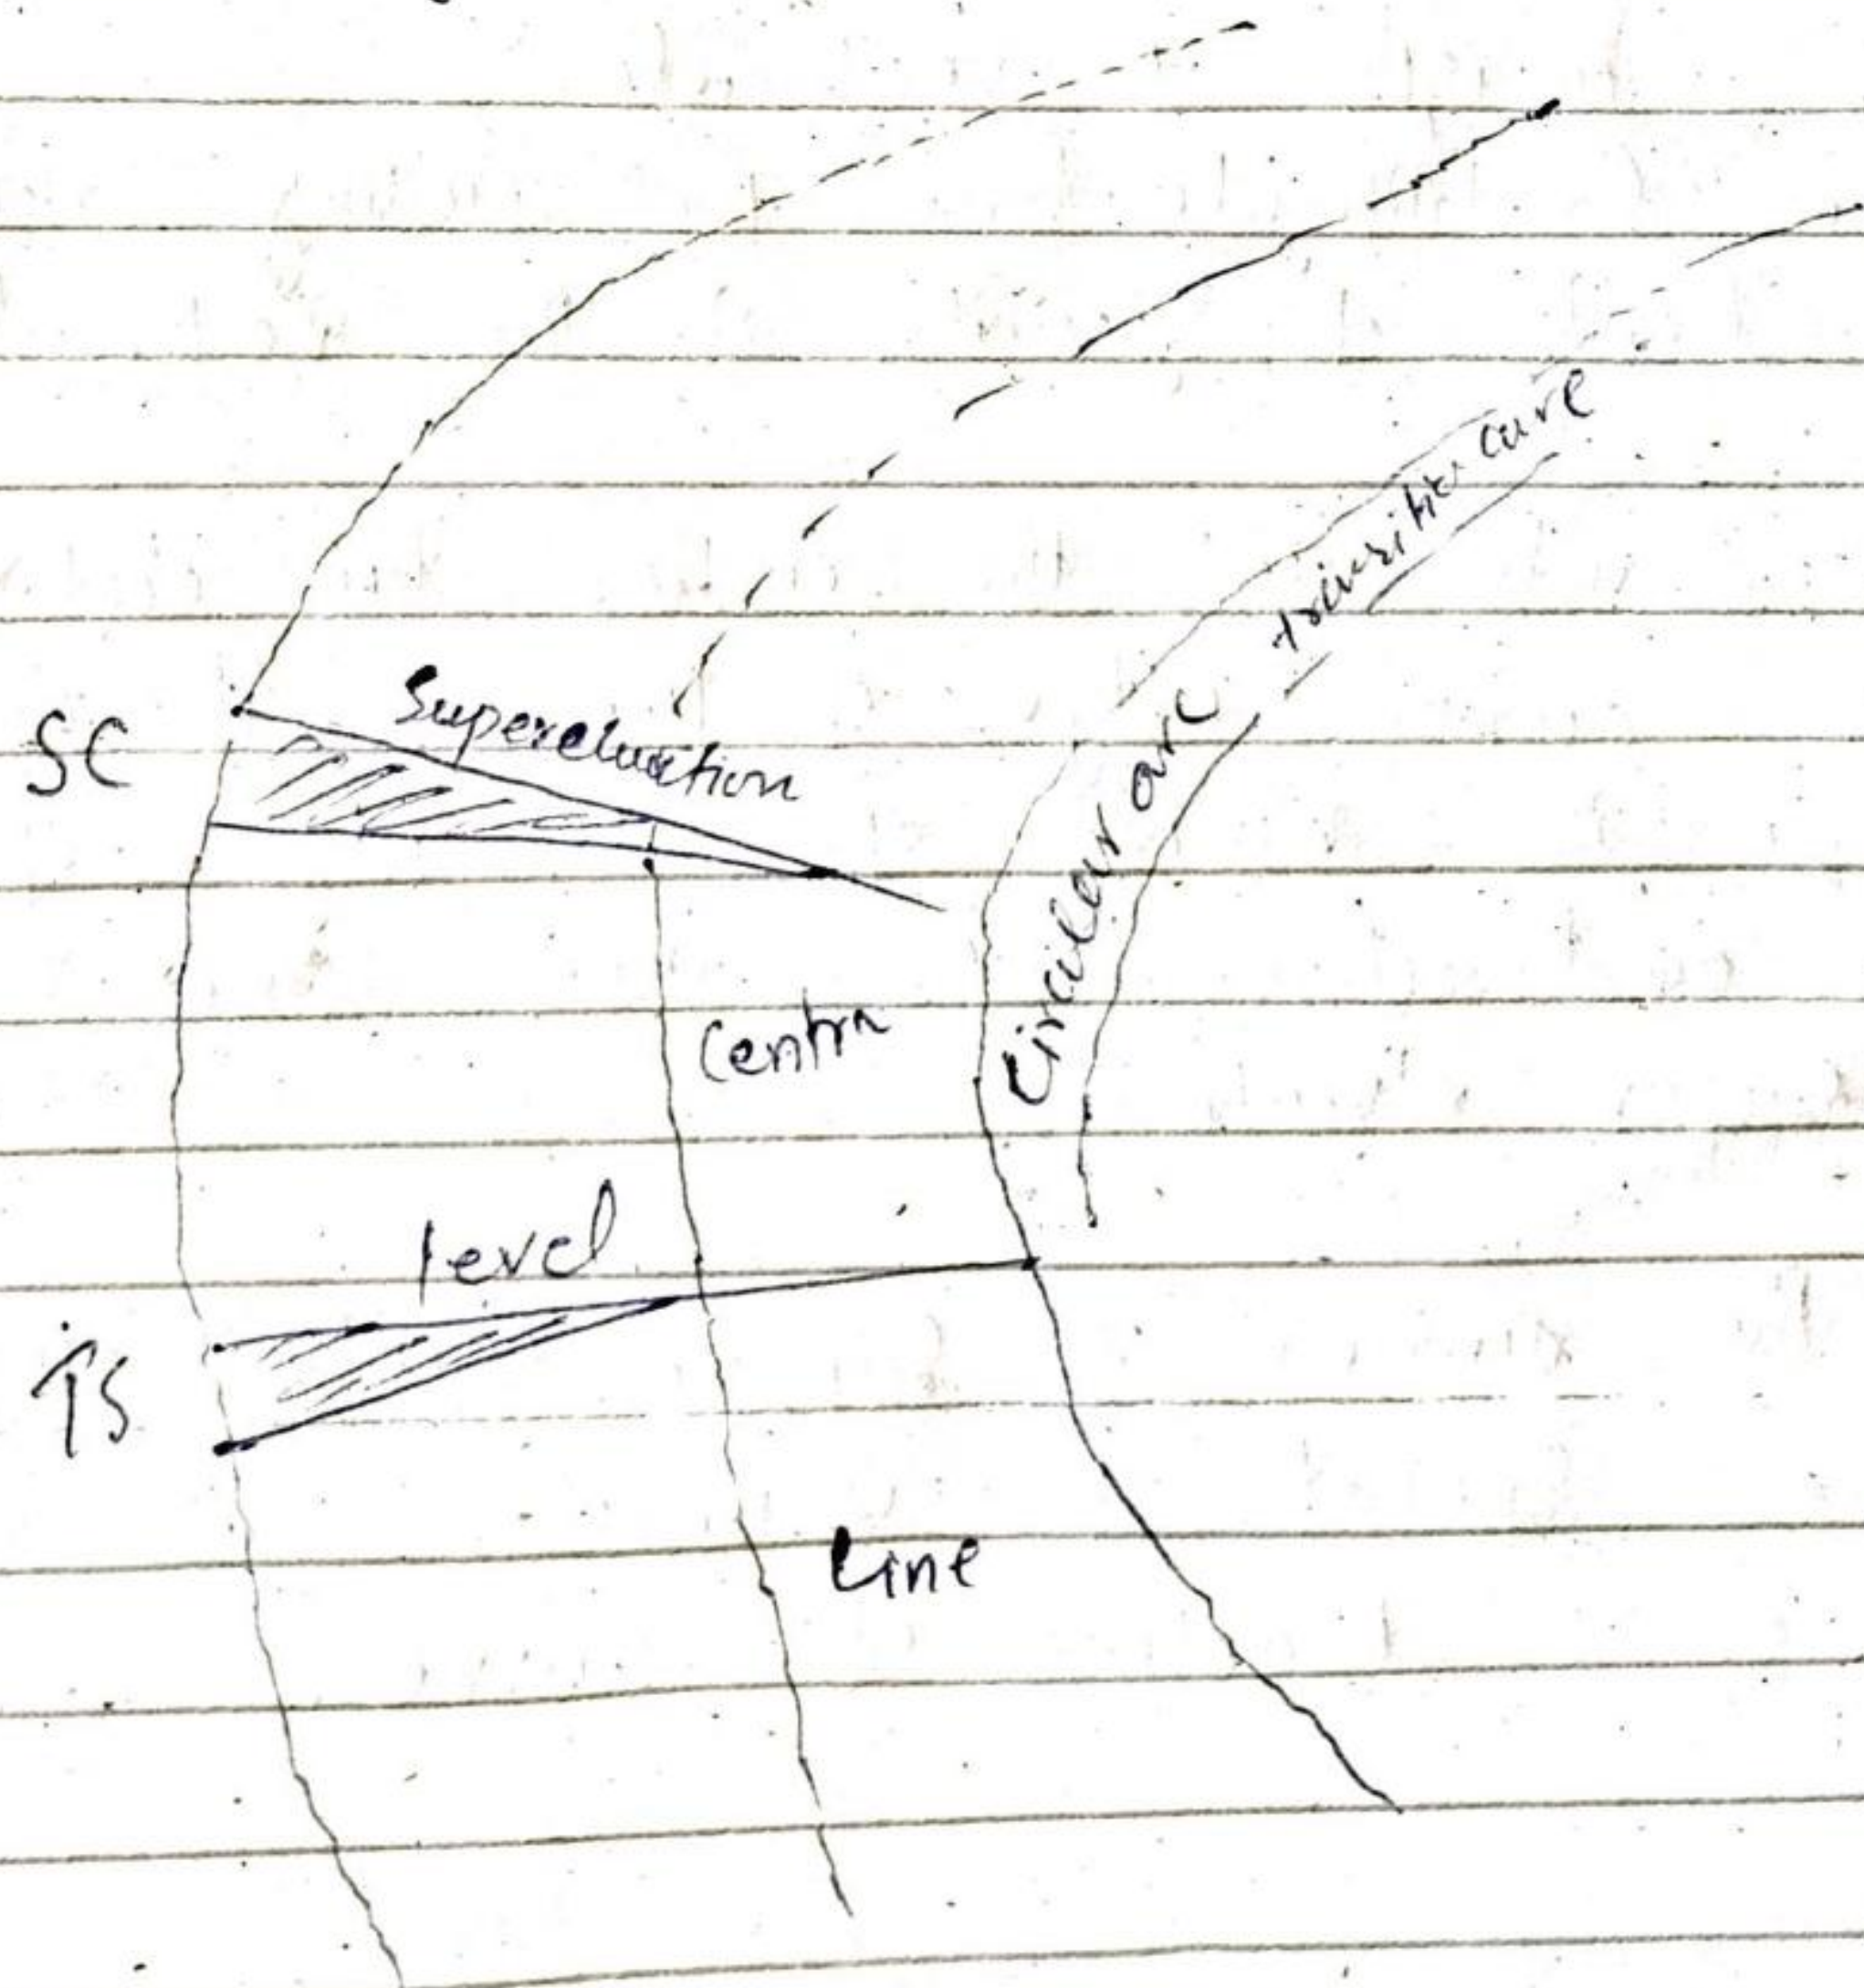 SC
Superelevation
Circular arc
curve
Centra
level
TS
Line